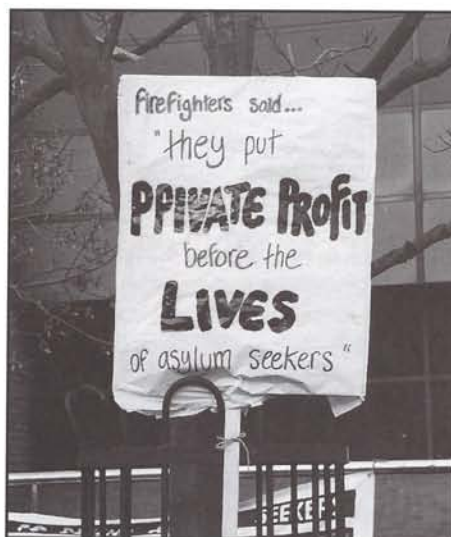 firefighters said...
"they put
PRIVATE PROFIT
before the
LIVES
of asylum seekers"
SEEKERS